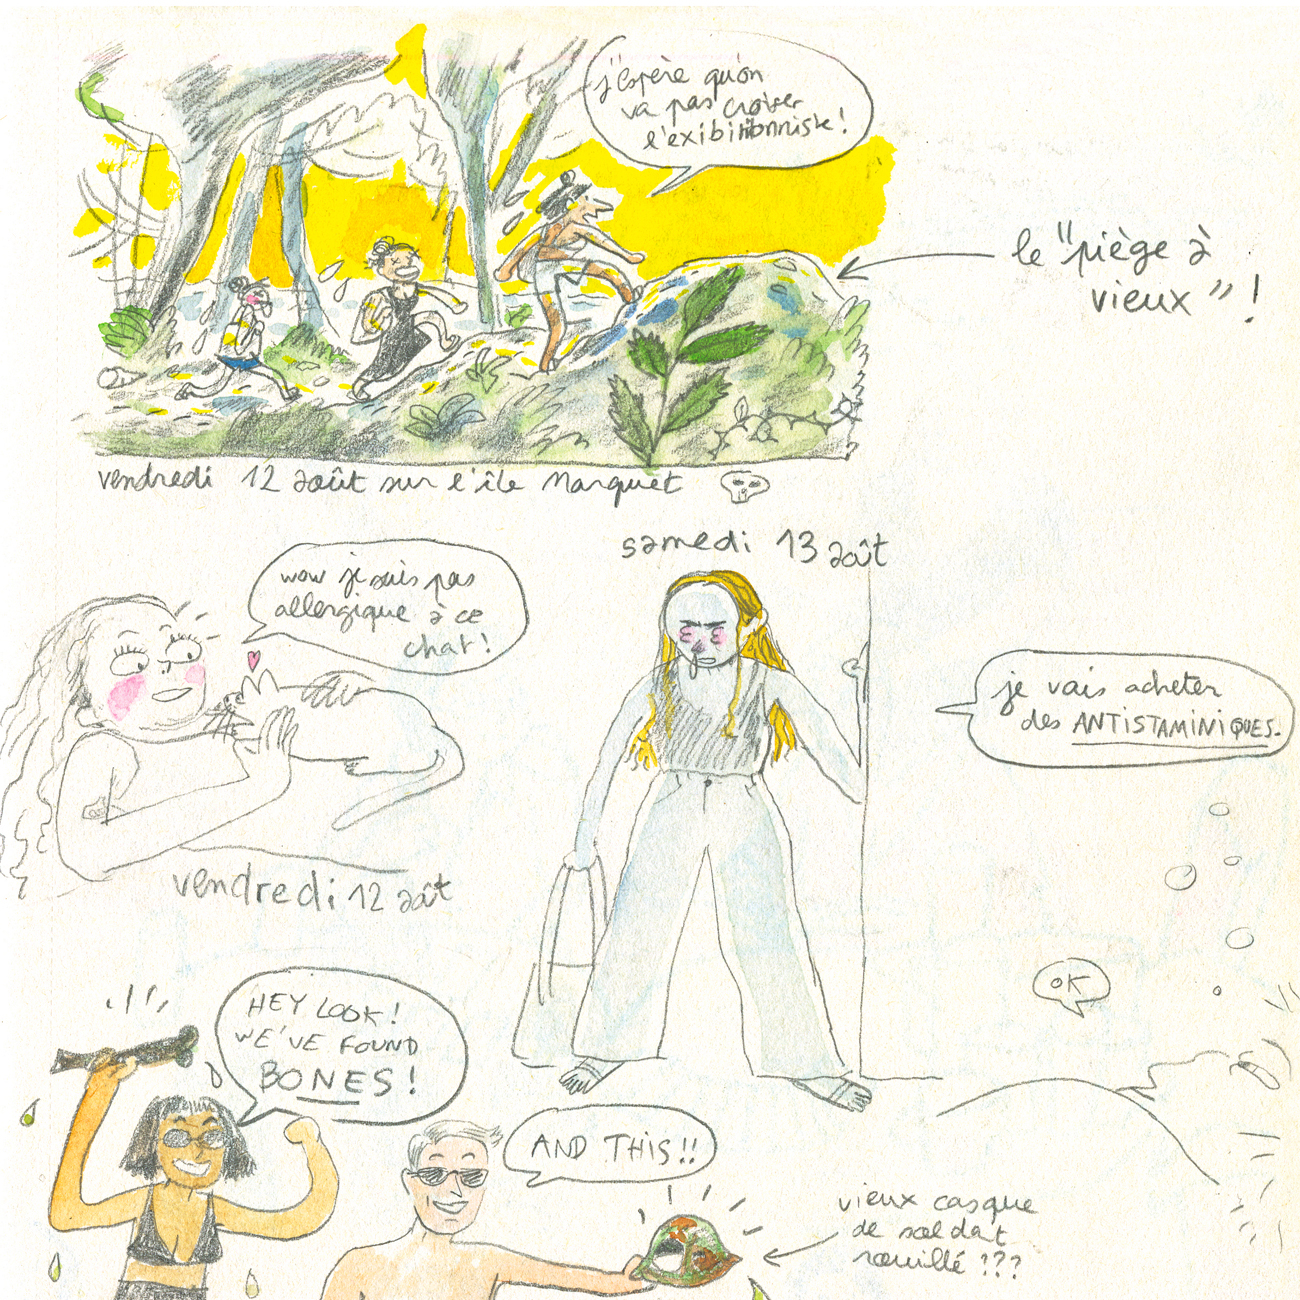 j'espère qu'on
va pas croiser
l'exibitionniste !
le "piège à
vieux" !
vendredi 12 août sur l'île Marquet
samedi 13 août
wow je suis pas
allergique à ce
chat !
je vais acheter
des ANTISTAMINIQUES.
vendredi 12 août
OK
HEY LOOK!
WE'VE FOUND
BONES!
AND THIS!!
vieux casque
de soldat
rouillé ???